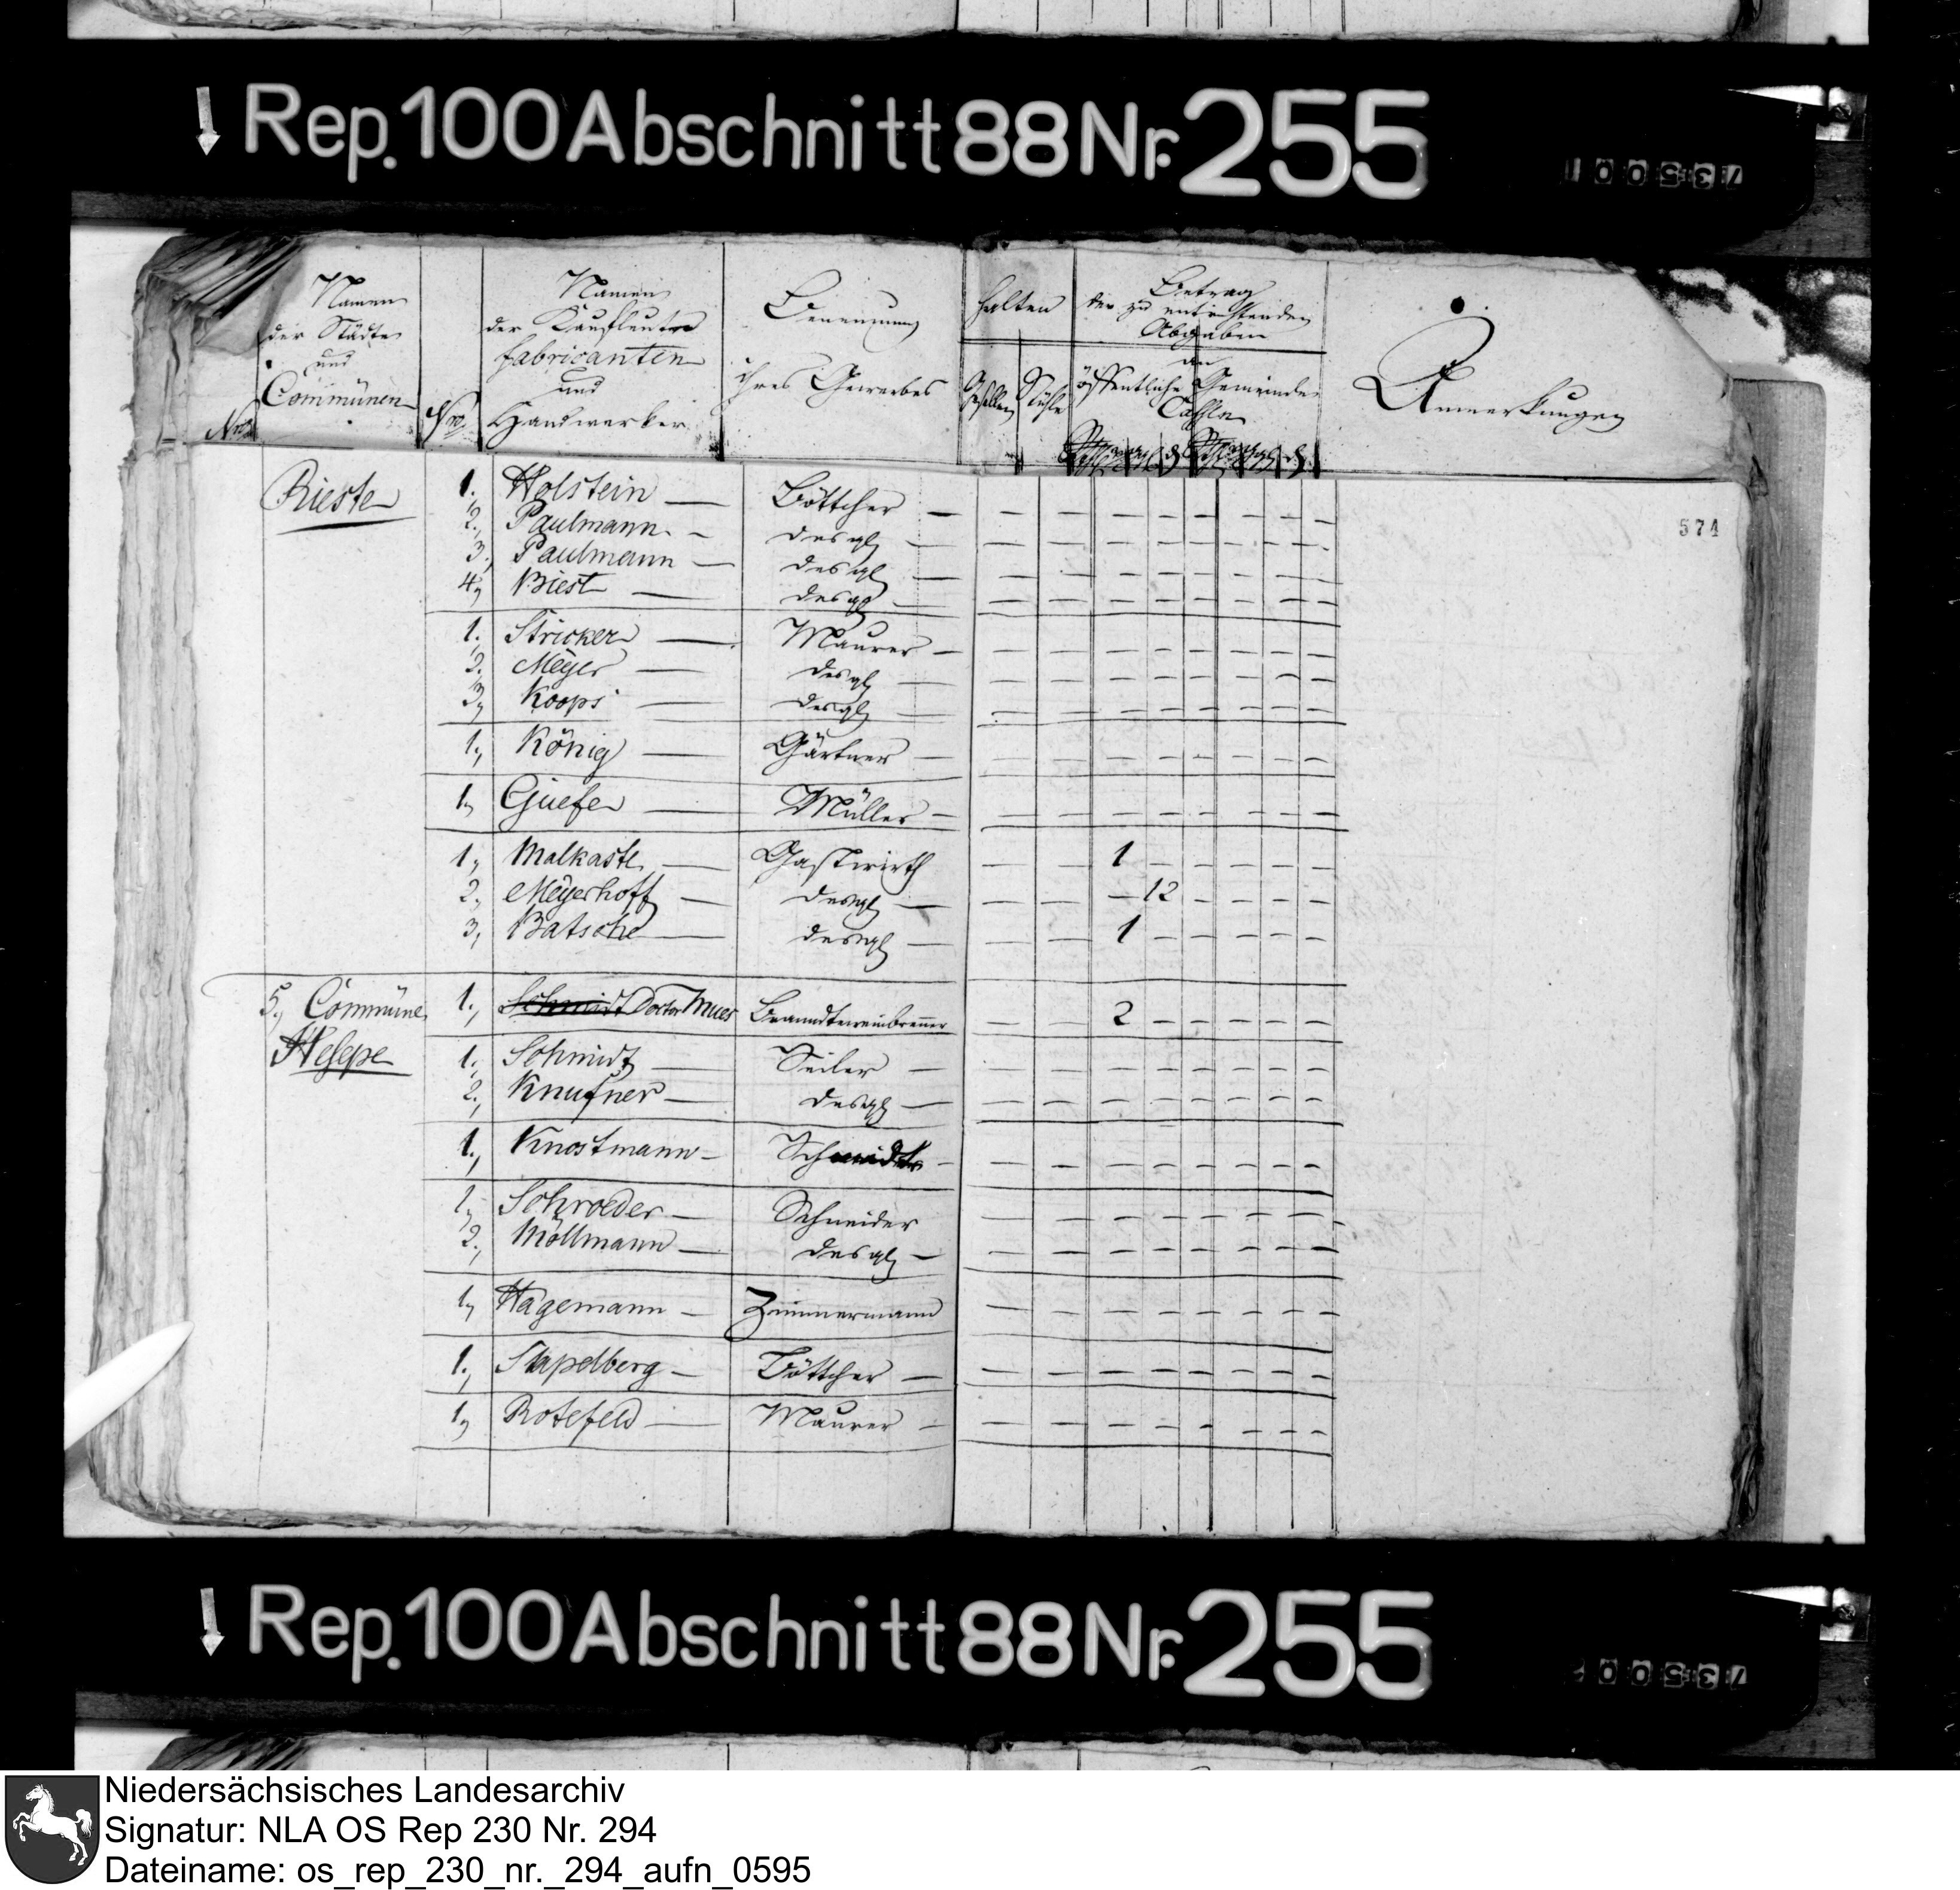 Rep. 100 Abschnitt 88 Nr. 255
735001
Namen der Städte und Communen
Nro
Nro
Namen der Kaufleute fabricanten und Handwerker
Benennung ihres Gewerbes
halten
Gesellen
Stühle
Betrag der zu entrichtenden Abgaben
an öffentliche Gemeinde Cassen
Anmerkungen
574
Rieste
1., Holstein — Böttcher — — — — — — — — —
2., Paulmann — desgl — — — — — — — — —
3., Paulmann — desgl — — — — — — — — —
4, Biest — desgl — — — — — — — — —
1., Stricker — Maurer — — — — — — — — —
2., Meyer — desgl — — — — — — — — —
3, Koops — desgl — — — — — — — — —
1., König — Gärtner — — — — — — — — —
1, Guefe — Müller — — — — — — — — —
1, Malkaste — Gastwirth — — 1 — — — — —
2, Meyerhoff — desgl — — — — 12 — — — —
3, Batsche — desgl — — — 1 — — — — —
5., Commüne Hesepe
1., Schmidt Doctor Mues Branndteweinbrenner — — 2 — — — — —
1., Schmidt — Seiler — — — — — — — — —
2., Knufner — desgl — — — — — — — — —
1., Knostmann — Schmidt — — — — — — — — —
1, Schroeder — Schneider — — — — — — — —
2., Möllmann — desgl — — — — — — — — —
1, Hagemann — Zimmermann — — — — — — — —
1., Stapelberg — Böttcher — — — — — — — — —
1, Rotefeld — Maurer — — — — — — — — —
Rep. 100 Abschnitt 88 Nr. 255
73500
Niedersächsisches Landesarchiv
Signatur: NLA OS Rep 230 Nr. 294
Dateiname: os_rep_230_nr._294_aufn_0595